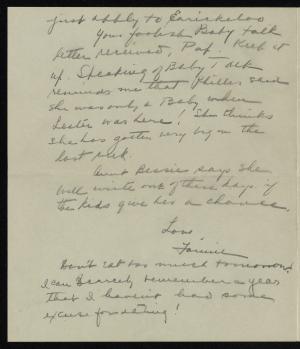 just apply to
Your foolish Baby talk
letter received, Pap. Keep it
up. Speaking of Baby talk
reminds me that Phillis said
she was only a Baby when
Lester was here! She thinks
she has gotten very big in the
last week.
Aunt Bessie says she
will write one of these days if
the kids give her a chance.
Love
Fannie
Don't eat too much tomorrow.
I can scarcely remember a year
that I haven't had some
excuse for dieting!